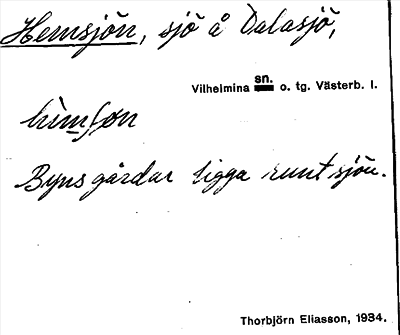 Hemsjön, sjö å Dalasjö,
Vilhelmina sn. o. tg. Västerb. l.
Byns gårdar ligga runt sjön.
Thorbjörn Eliasson, 1934.